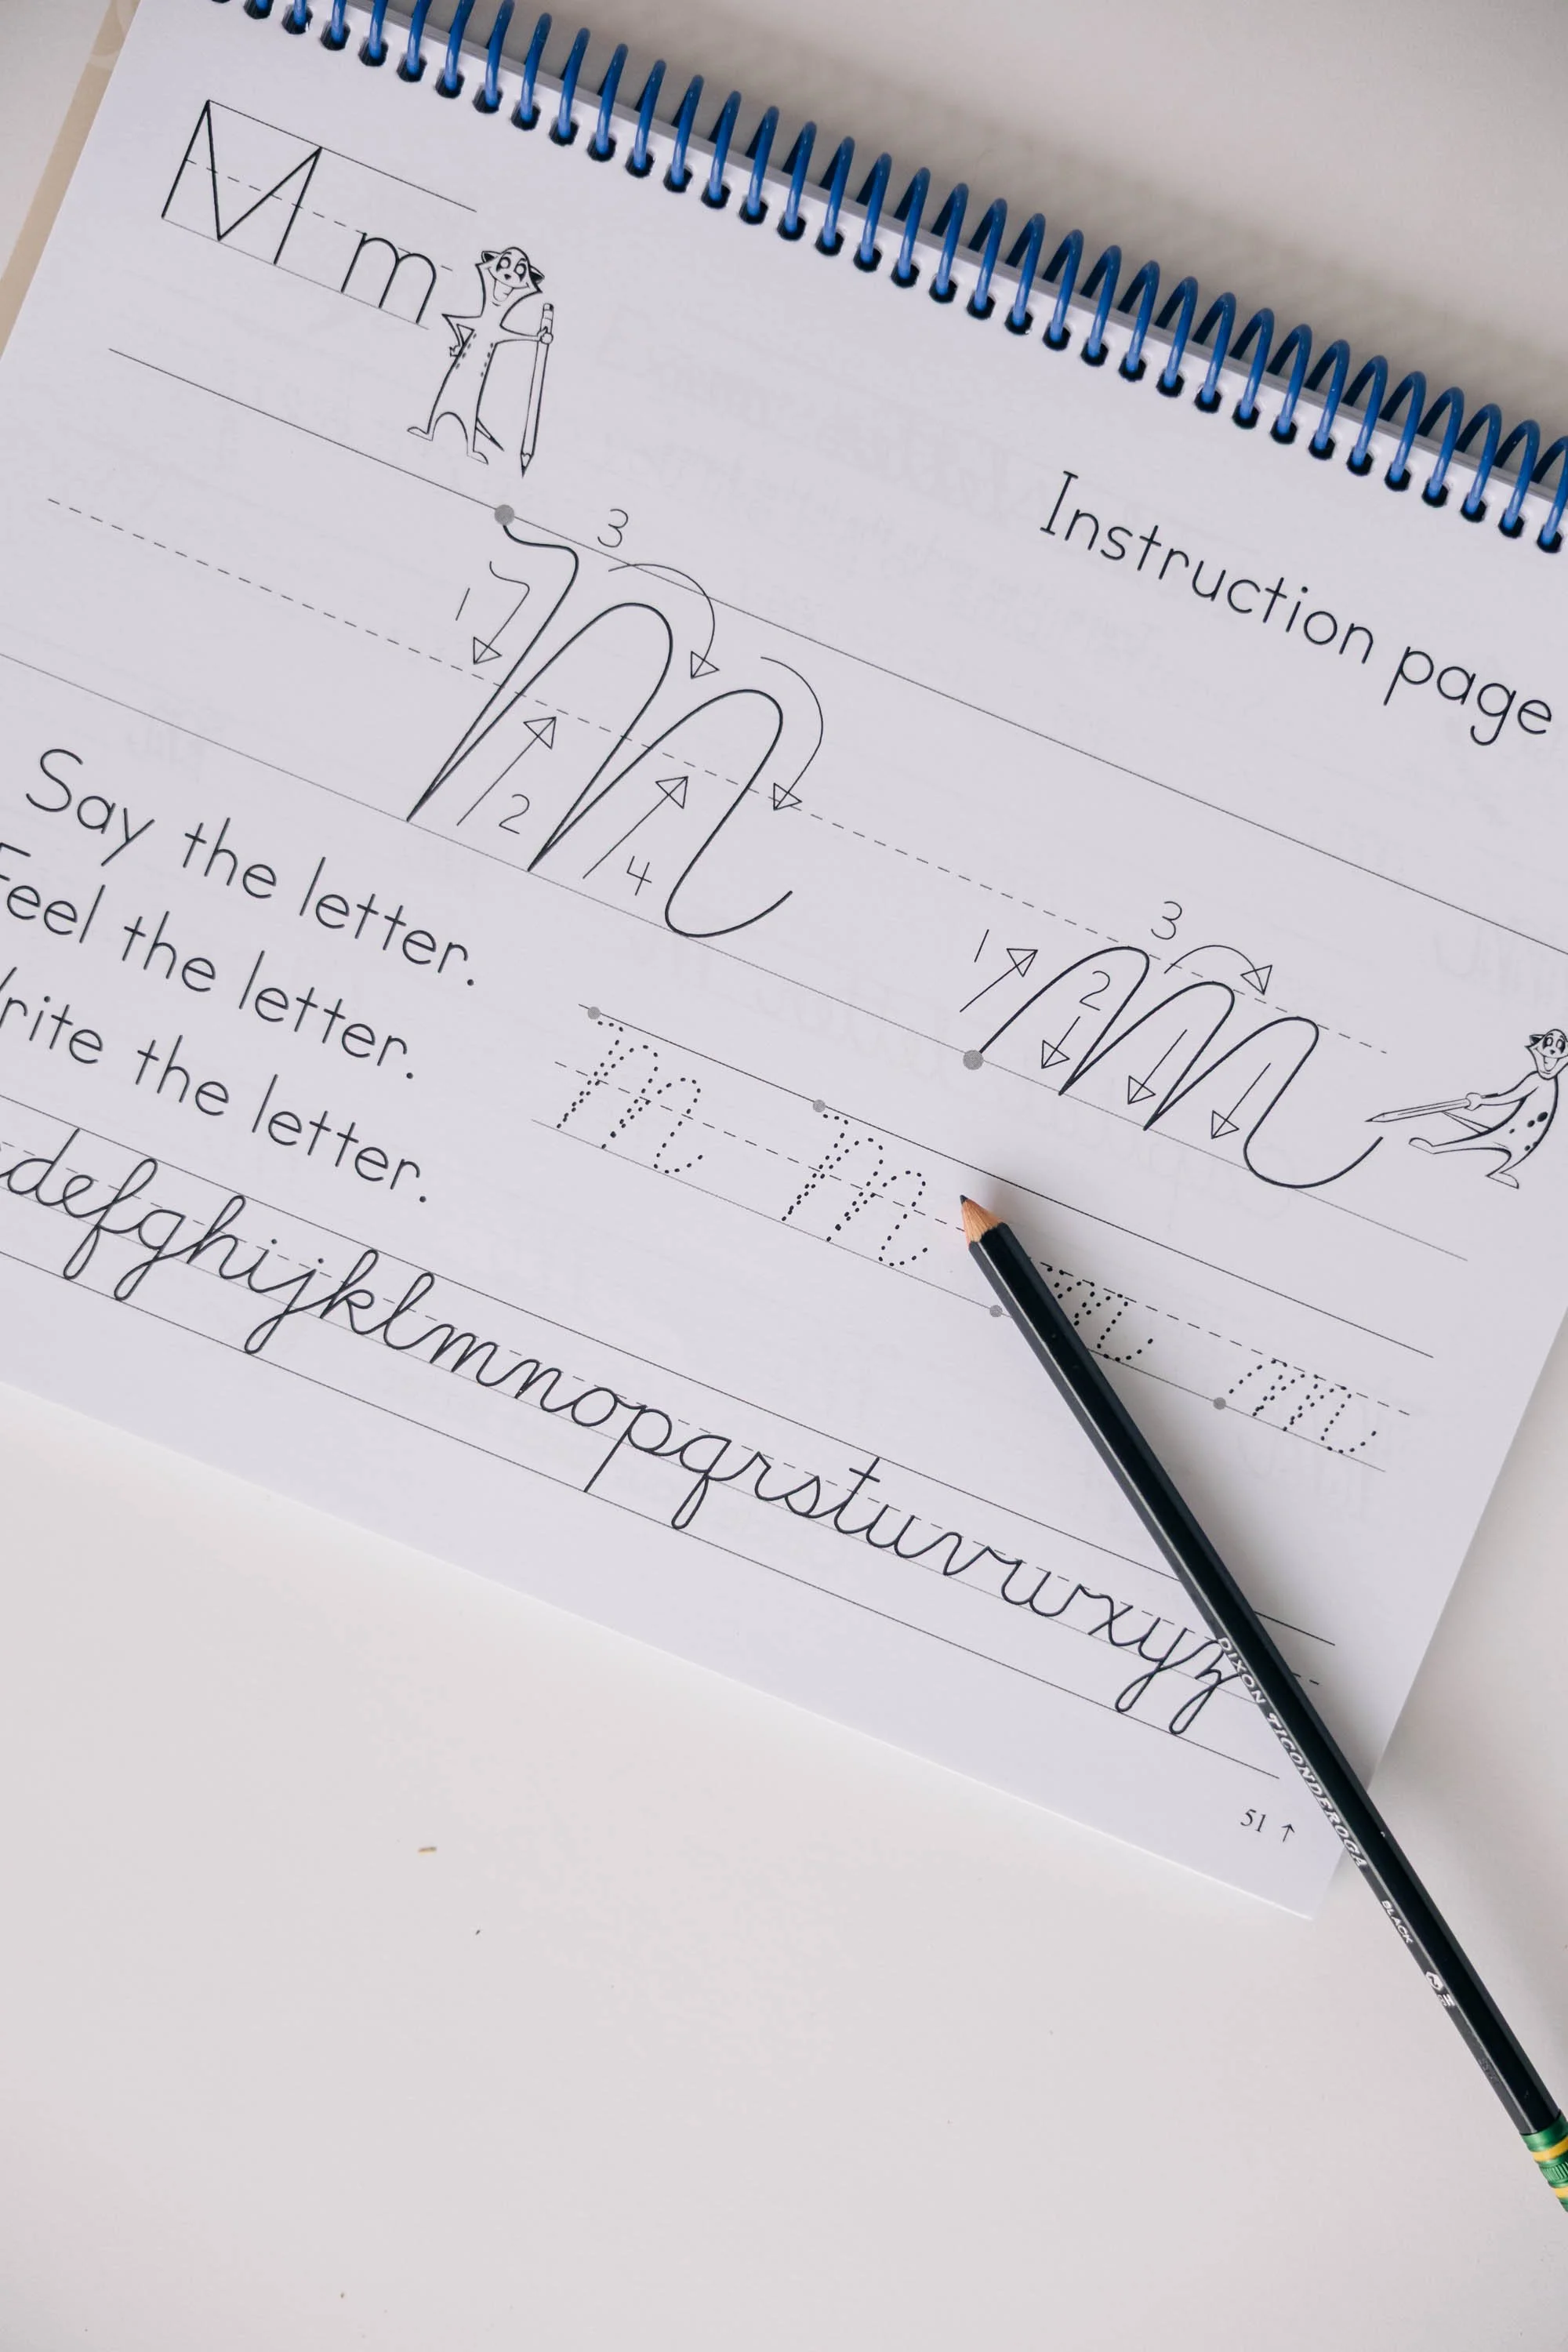 M m
Instruction page
1 3
2 4
1 2 3
Say the letter.
Feel the letter.
Write the letter.
m m m m
defghijklmnopqrstuvwxyz
51 ↑
DIXON TICONDEROGA BLACK